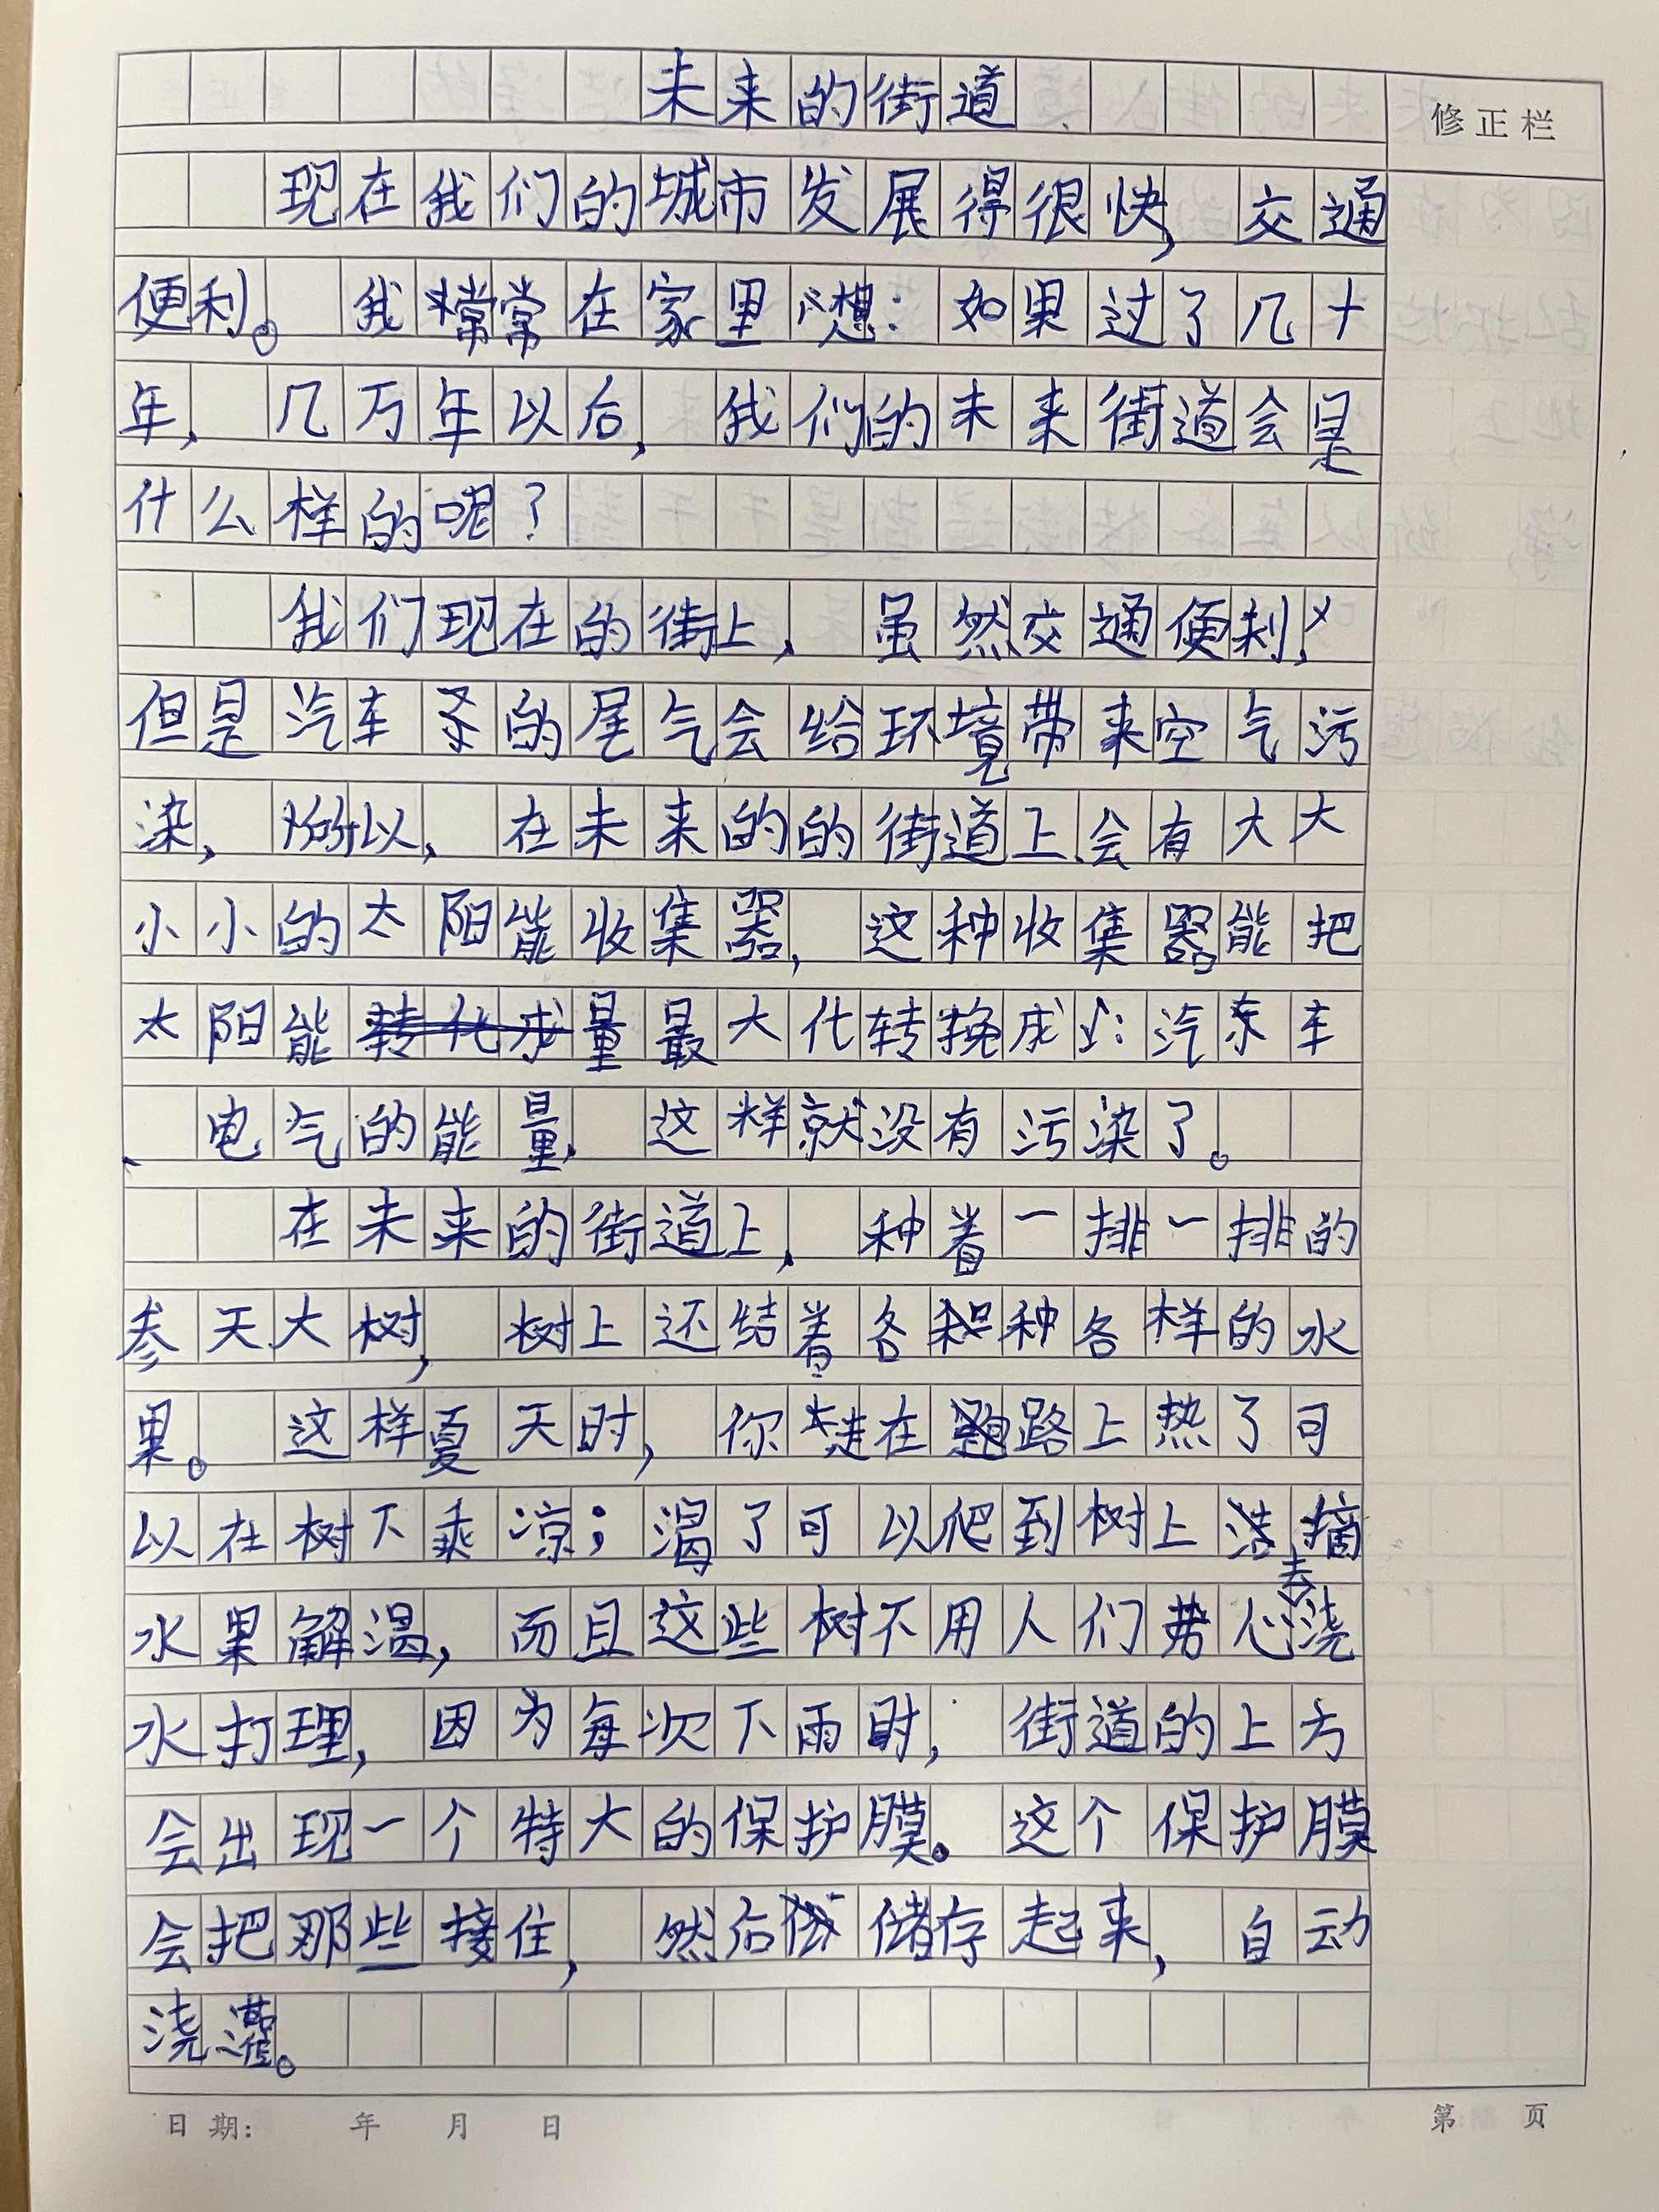 未来的街道
修正栏
现在我们的城市发展得很快，交通
便利。我常常在家里想：如果过了几十
年，几万年以后，我们的未来街道会是
什么样的呢？
我们现在的街上，虽然交通便利，
但是汽车的尾气会给环境带来空气污
染，所以，在未来的的街道上会有大大
小小的太阳能收集器，这种收集器能把
太阳能量最大化转换成汽车
、电气的能量，这样就没有污染了。
在未来的街道上，种着一排一排的
参天大树，树上还结着各种各样的水
果。这样夏天时，你走在路上热了可
以在树下乘凉；渴了可以爬到树上去摘
水果解渴，而且这些树不用人们费心浇
水打理，因为每次下雨时，街道的上方
会出现一个特大的保护膜。这个保护膜
会把那些接住，然后储存起来，自动
浇灌。
日期： 年 月 日
第 页